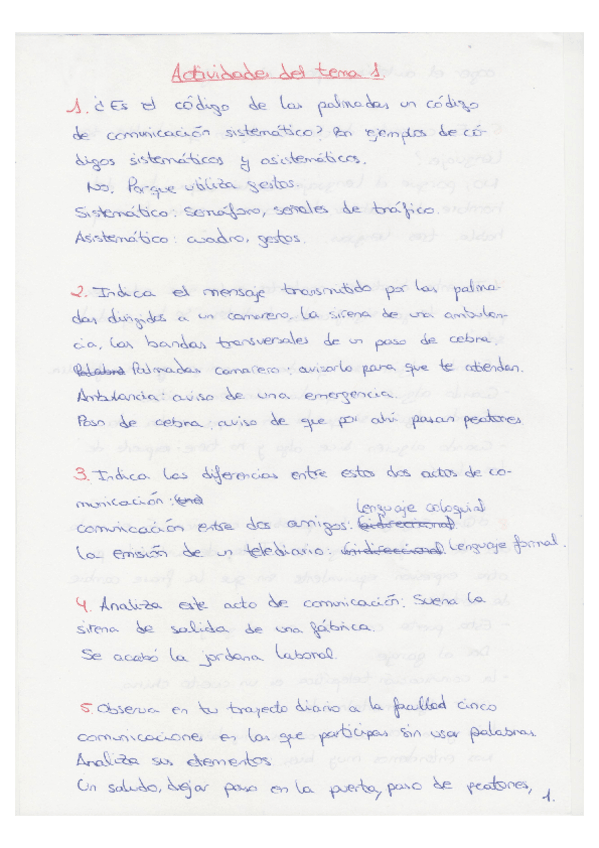 Actividades del tema 1.
1. ¿Es el código de las palmadas un código
de comunicación sistemático? Pon ejemplos de có-
digos sistemáticos y asistemáticos.
No. Porque utiliza gestos.
Sistemático: Semáforo, señales de tráfico.
Asistemático: cuadro, gestos.
2. Indica el mensaje transmitido por las palma-
das dirigidas a un camarero, la sirena de una ambulan-
cia, las bandas transversales de un paso de cebra.
Palabras Palmadas camarero: avisarlo para que te atiendan.
Ambulancia: aviso de una emergencia.
Paso de cebra: aviso de que por ahí pasan peatones.
3. Indica las diferencias entre estos dos actos de co-
municación:
Lenguaje coloquial
comunicación entre dos amigos: bidireccional.
La emisión de un telediario: unidireccional. Lenguaje formal.
4. Analiza este acto de comunicación: Suena la
sirena de salida de una fábrica.
Se acabó la jordana laboral.
5. Observa en tu trayecto diario a la facultad cinco
comunicaciones en las que participas sin usar palabras
Analiza sus elementos.
Un saludo, dejar paso en la puerta, paso de peatones,
1.